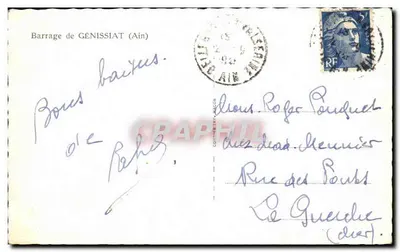 Barrage de GÉNISSIAT (Ain)
Bons baisers
de
Mons. Roger Pouquet
chez Mad. Meunier
Rue des Ponts
La Guerche
(Cher)
AIN
RF
CRAFTER